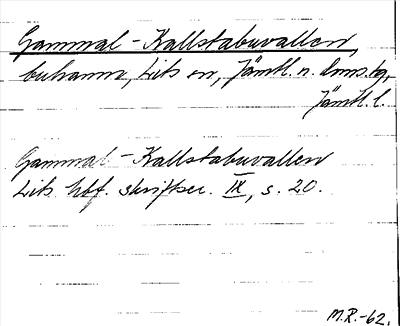 Gammal-Kallstabuvallen,
buhamn, Lits sn, Jämtl. n. doms.ag,
Jämtl. l.
Gammal-Kallstabuvallen
Lits hbf. skriftser. IX, s. 20.
M.R.-62.